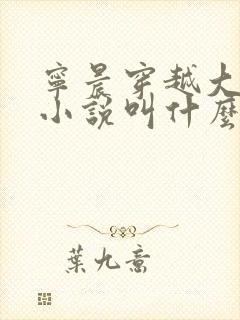 寧晨穿越大
小說叫什麼
葉九喬